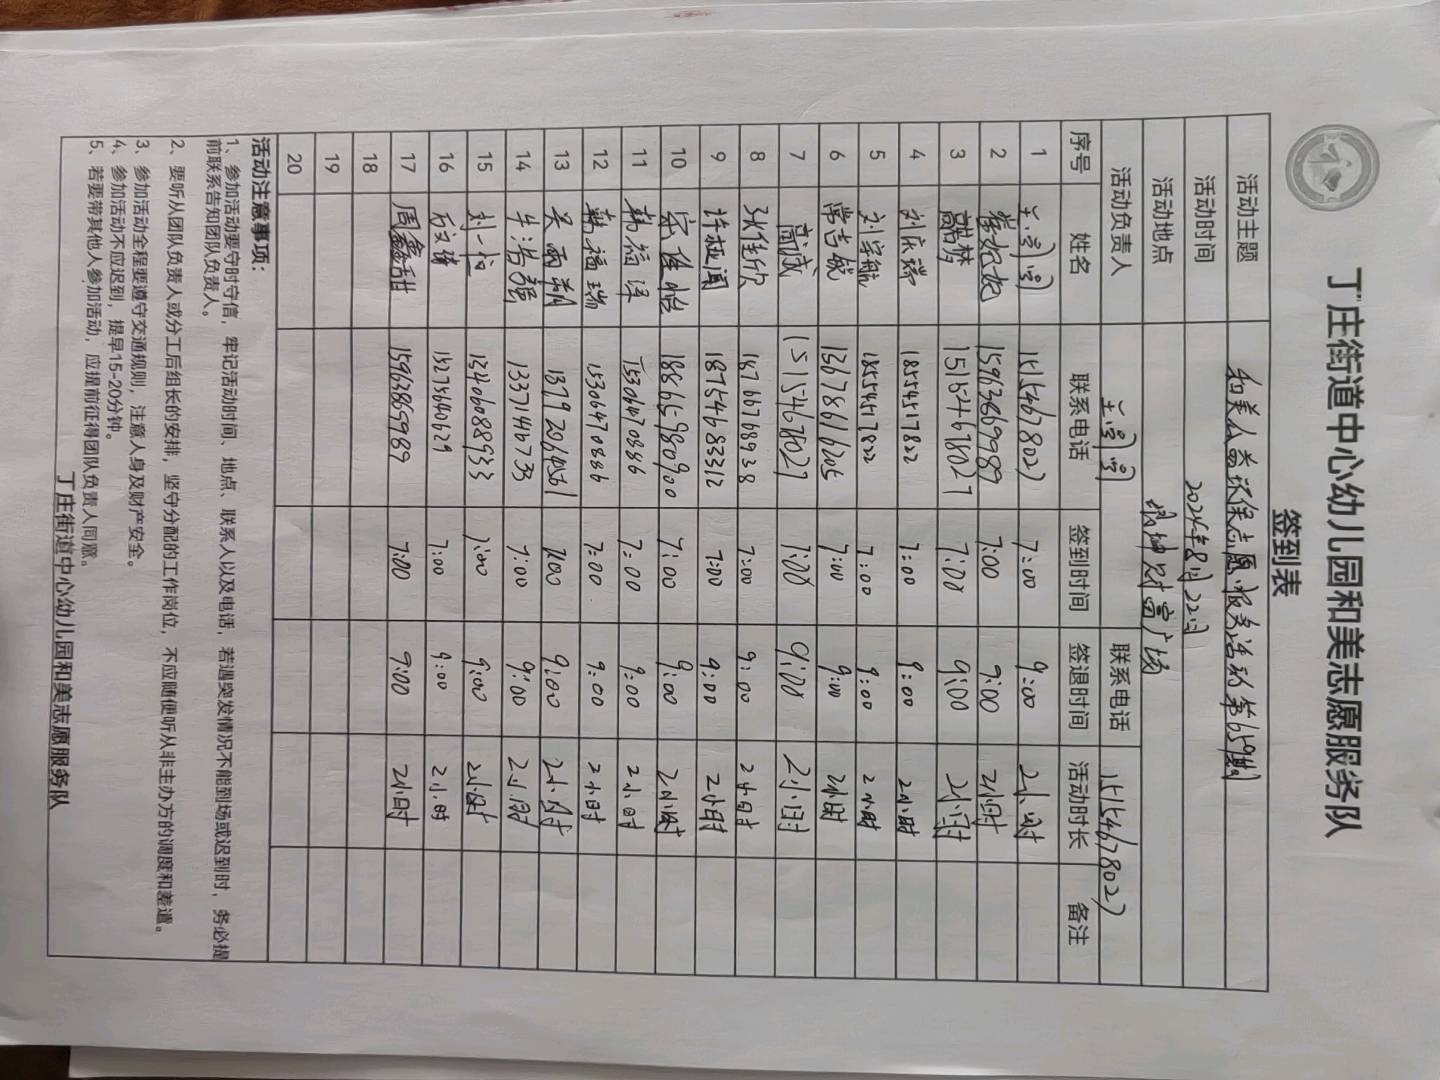 丁庄街道中心幼儿园和美志愿服务队
签到表
活动主题 和美公益环保志愿服务活动第659期
活动时间 2024年8月22日
活动地点 财富广场
活动负责人 联系电话 15154678027
序号 姓名 联系电话 签到时间 签退时间 活动时长 备注
1 15154678027 7:00 9:00 2小时
2 15963869989 7:00 9:00 2小时
3 15154678027 7:00 9:00 2小时
4 18554517822 7:00 9:00 2小时
5 刘宇航 18554517822 7:00 9:00 2小时
6 常吉成 13678616205 7:00 9:00 2小时
7 高诚 15154678027 7:00 9:00 2小时
8 张佳欣 18766768938 7:00 9:00 2小时
9 18754683312 7:00 9:00 2小时
10 宋佳怡 18865980900 7:00 9:00 2小时
11 韩福泽 15306470886 7:00 9:00 2小时
12 韩福瑞 15306470886 7:00 9:00 2小时
13 吴雨朔 7:00 9:00 2小时
14 牛浩强 7:00 9:00 2小时
15 刘一 13406088933 7:00 9:00 2小时
16 15275640629 7:00 9:00 2小时
17 周鑫甜 15963869989 7:00 9:00 2小时
18
19
20
活动注意事项：
1、参加活动要守时守信，牢记活动时间、地点、联系人以及电话，若遇突发情况不能到场或迟到时，务必提
前联系告知团队负责人。
2、要听从团队负责人或分工后组长的安排，坚守分配的工作岗位，不应随便听从非主办方的调度和差遣。
3、参加活动全程要遵守交通规则，注意人身及财产安全。
4、参加活动不应迟到，提早15-20分钟。
5、若要带其他人参加活动，应提前征得团队负责人同意。
丁庄街道中心幼儿园和美志愿服务队